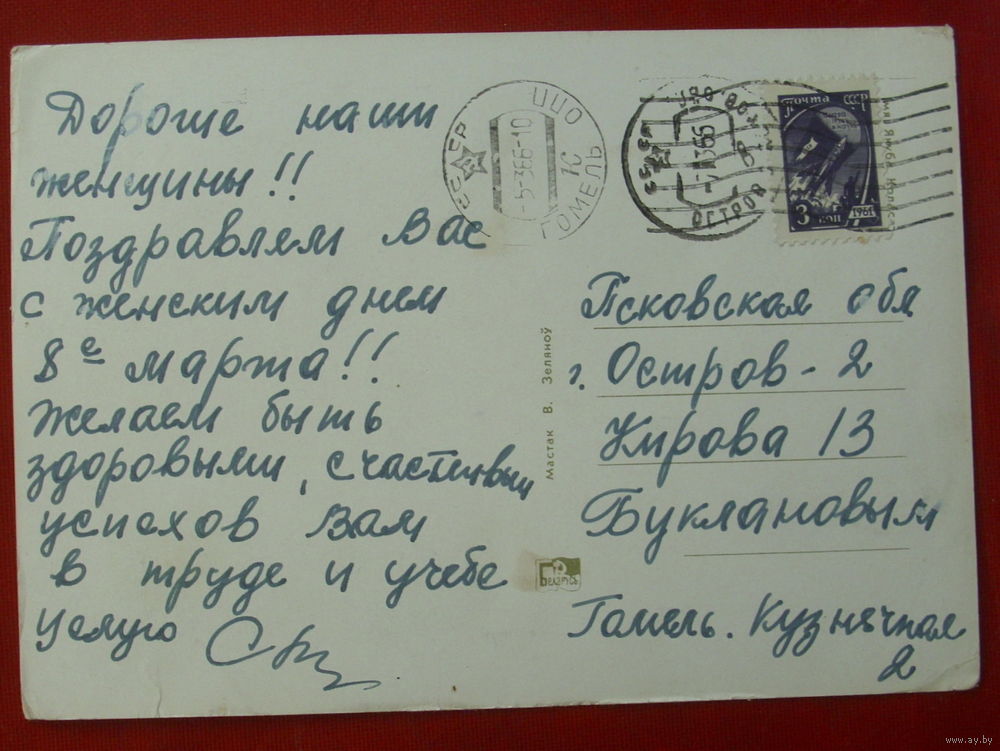 Дорогие наши
женщины!!
Поздравляем Вас
с женским днем
8е марта!!
Желаем быть
здоровыми, счастливыми
успехов Вам
в труде и учебе
Целую
СССР
ЦПО
1С
ГОМЕЛЬ
-5-366-10
СССР
ОСТРОВ
ПОЧТА СССР
3 коп
1961
Мастак В. Зеляноў
БЕЛАРУСЬ
Псковская обл
г. Остров-2
Кирова 13
Буклановым
Гомель. Кузнечная
2
www.ay.by